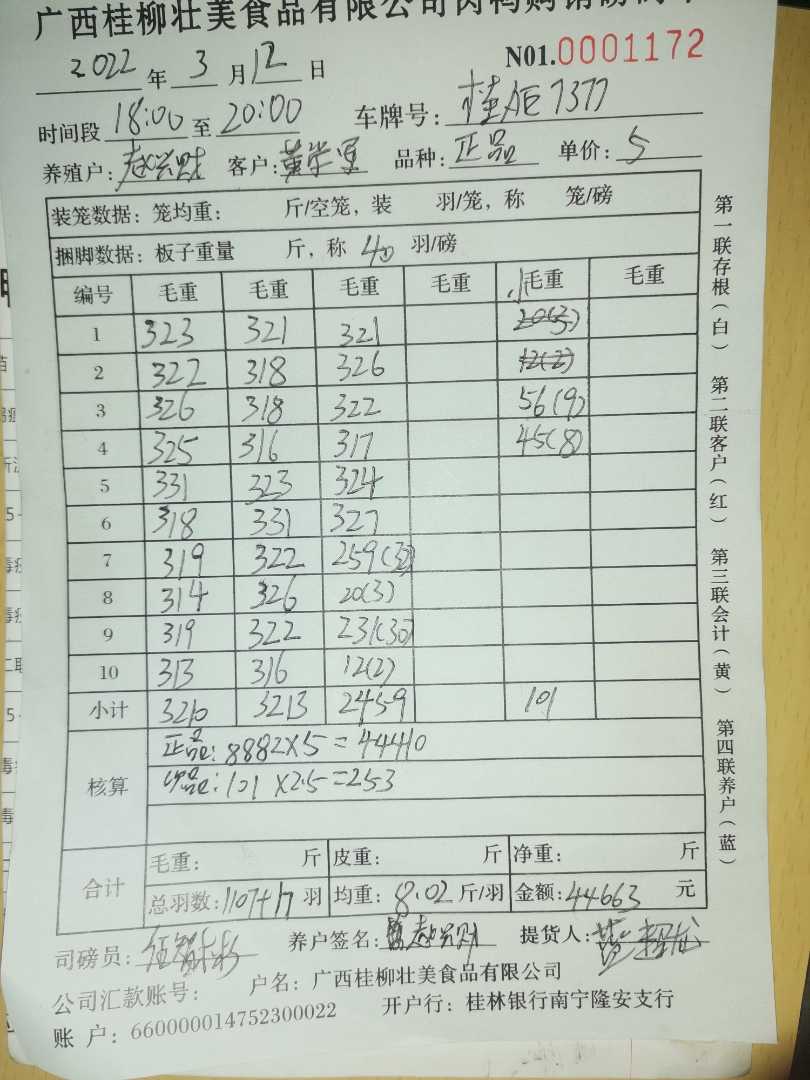 广西桂柳壮美食品有限公司肉鸭购销磅码单
2022 年 3 月 12 日 N01.0001172
时间段 18:00 至 20:00 车牌号: 桂AE7377
养殖户: 赵兴财 客户: 黄学军 品种: 正品 单价: 5
装笼数据: 笼均重: 斤/空笼, 装 羽/笼, 称 笼/磅
捆脚数据: 板子重量 斤, 称 40 羽/磅
编号 毛重 毛重 毛重 毛重 小毛重 毛重
1 323 321 321 20(3)
2 322 318 326 12(2)
3 326 318 322 56(9)
4 325 316 317 45(8)
5 331 323 324
6 318 331 327
7 319 322 259(32)
8 314 326 20(3)
9 319 322 231(30)
10 313 316 12(2)
小计 3210 3213 2459 101
核算 正品: 8882×5=44410
小品: 101×2.5=253
合计 毛重: 斤 皮重: 斤 净重: 斤
总羽数: 1107+17 羽 均重: 8.02 斤/羽 金额: 44663 元
司磅员: 养户签名: 赵兴财 提货人:
公司汇款账号: 户名: 广西桂柳壮美食品有限公司
账 户: 660000014752300022 开户行: 桂林银行南宁隆安支行
第一联存根(白) 第二联客户(红) 第三联会计(黄) 第四联养户(蓝)